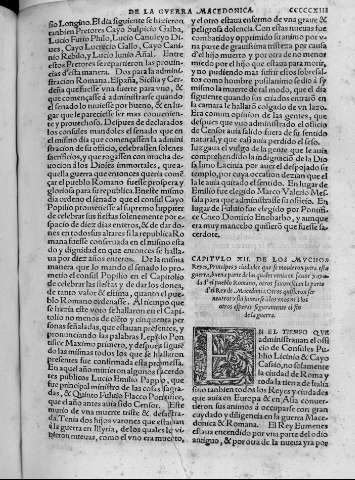 DE LA GVERRA MACEDONICA. CCCCCXIII
sio Longino. El dia siguiente se hizieron
tambien Pretores Cayo Sulpicio Galba,
Lucio Furio Philo, Lucio Canuleyo Di-
ues, Cayo Lucrecio Gallo, Cayo Cani-
nio Rebilo, y Lucio Junio Añal. Entre
estos Pretores se repartieron las prouin-
cias desta manera. Dos para la adminis-
tracion Romana, España, Sicilia, y Cer-
deña que fuesse vna fuerte para vno, &
que començasse à administrarse quando
el senado lo quisiesse por bueno, & en lu-
gar que le pareciesse ser mas conuenien-
te y prouechoso. Despues de declarados
los consules mandoles el senado que en
el mismo dia que començassen la admi-
nistracion de su officio, celebrassen solenes
sacrificios, y que rogassen con mucha de-
uocion à los Dioses immortales, que a-
quella guerra que entonces queria comen-
çar el pueblo Romano fuesse prospera y
gloriosa para su republica. En este mismo
dia ordeno el senado que el consul Cayo
Popilio prometiesse al supremo Iuppiter
de celebrar sus fiestas solenemente por es-
pacio de diez dias enteros, & de dar do-
nes en todos sus altares si la republica Ro
mana fuesse conseruada en el mismo esta-
do y dignidad en que entonces se halla-
ua por diez años enteros. De la misma
manera que lo mando el senado lo pro-
metio el consul Popilio en el Capitolio
de celebrar las fiestas y de dar los dones,
de tanto valor & estima, quanto el pue-
blo Romano ordenasse. Al tiempo que
se hazia este voto se hallaron en el Capi-
tolio no menos de ciento y cinquenta per
sonas señaladas, que estauan presentes, y
pronunciando las palabras Lepido Pon
tifice Maximo primero, y despues siguié
do las mismas todos los que se hallaron
presentes fue confirmada esta promessa.
En aquel año murieron algunos sacerdo
tes publicos Lucio Emilio Pappo, que
fue principal ministro de las cosas sagra-
das, & Quinto Fuluio Flacco Pontifice,
que el año antes auia sido Censor. Este
murio de vna muerte triste & desastra-
da. Tenia dos hijos varones que estauan
à la guerra en Illyria, de los quales le vi-
nieron nueuas, como el vno era muerto,
y el otro estaua enfermo de vna graue &
peligrosa dolencia. Con estas nueuas fue
combatido y opprimido su animo por vn
na parte de grauissima tristeza por causa
del hijo muerto y por otra de no menor
miedo por el hijo que estaua para morir,
y no pudiendo mas sufrir estos sobresal-
tos como hombre pusilanimo se dio à sy
mismo la muerte de tal modo, que el dia
siguiente quando sus criados entraron en
la camara le hallaron colgado de vn lazo.
Era comun opinion de las gentes, que
despues que vuo administrado el officio
de Censor auia salido fuera de su sentido
natural, y que casi auia perdido el seso.
Iuzgaua el vulgo de la gente que le auia
comprehendido la indignacion de la Dio
sa Iuno Lacinia por auer el despojado su
templo, por cuya ocasion dezian que el-
la le auia quitado el sentido. En lugar de
Emilio fue elegido Marco Valerio Mes-
sala para que administrasse su officio. En
lugar de Fuluio fue elegido por Pontifi-
ce Cneo Domicio Enobarbo, y aunque
era muy mancebo quisieron que fuesse sa-
cerdote.
CAPITVLO XII. DE LOS MVCHOS
Reyes, Principes y ciudades que se mouieron
EN EL TIEMPO QVE
administrauan el offi
cio de Consules Pu-
blio Licinio & Cayo
Cassio, no solamente
la ciudad de Roma y
toda la tierra de Italia
sino tambien todos los Reyes y ciudades
que auia en Europa & en Asia conuer-
tieron sus animos à occuparse con gran
cuydado y diligencia en la guerra Mace-
donica & de Roma. El Rey Eumenes
estaua encendido por vna parte del odio
antiguo, & por otra de la nueua yra por